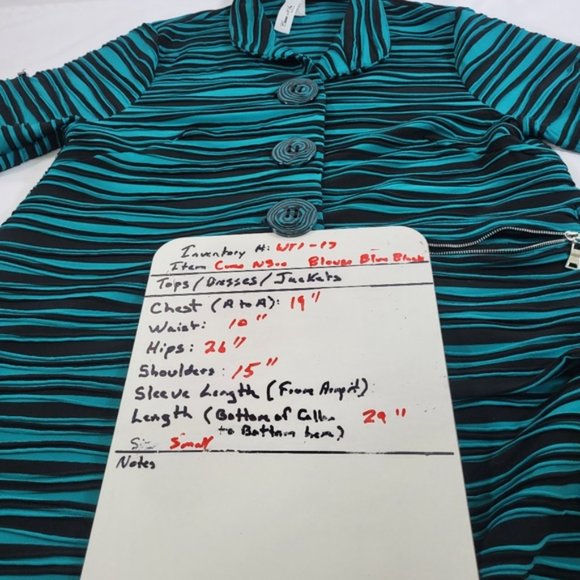 Inventory #: WTJ-17
Item Como N300 Blouse Blue Black
Tops/Dresses/Jackets
Chest (A to A): 19"
Waist: 10"
Hips: 26"
Shoulders: 15"
Sleeve Length (From Armpit)
Length (Bottom of Collar 29"
to Bottom hem)
Size Small
Notes